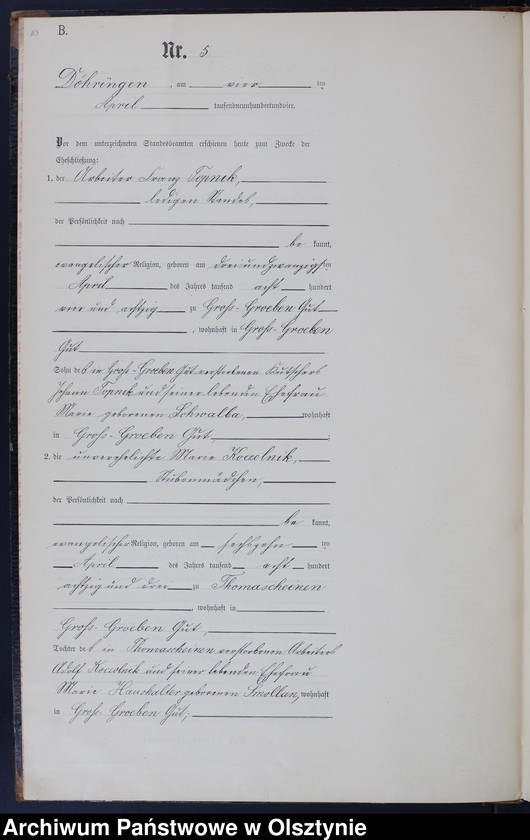 B.
Nr. 5
Döhringen, am vier ten
April tausendneunhundertundvier.
Vor dem unterzeichneten Standesbeamten erschienen heute zum Zwecke der
Eheschließung:
1. der Arbeiter Franz Topnik,
ledigen Standes,
der Persönlichkeit nach
be kannt,
evangelischer Religion, geboren am dreiundzwanzigsten
April des Jahres tausend acht hundert
vier und achtzig zu Gross-Groeben Gut
, wohnhaft in Gross-Groeben
Gut
Sohn des in Gross-Groeben Gut verstorbenen Kutschers
Johann Topnik und seiner lebenden Ehefrau
Marie geborenen Schwalba, wohnhaft
in Gross-Groeben Gut;
2. die unverehelichte Marie
Stubenmädchen,
der Persönlichkeit nach
be kannt,
evangelischer Religion, geboren am sechszehn ten
April des Jahres tausend acht hundert
achtzig und drei zu Thomascheinen
, wohnhaft in
Gross-Groeben Gut,
Tochter des in Thomascheinen verstorbenen Arbeiters
Adolf und seiner lebenden Ehefrau
Marie Haushalter geborenen Smollan, wohnhaft
in Gross-Groeben Gut;
Archiwum Państwowe w Olsztynie